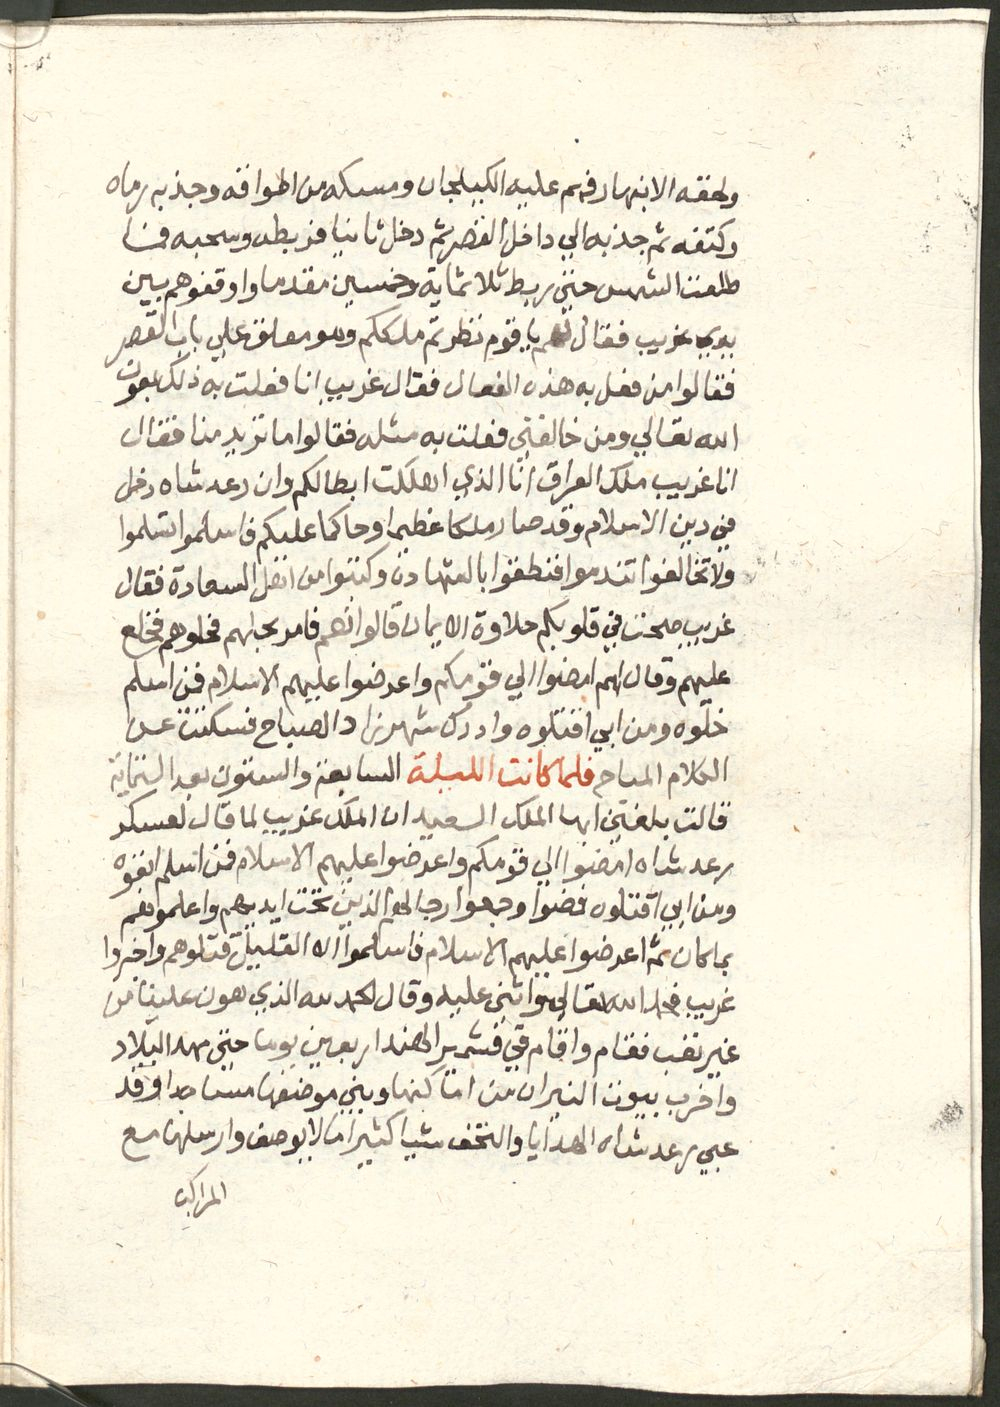 ولحقه الانبهار فهجم عليه الكيلجان ومسكه من اطواقه وجذبه رماه
وكتفه ثم جذبه الي داخل القصر ثم دخل ثانيا فربطه وسحبه فما
طلعت الشمس حتي ربط ثلاثماية وخمسين مقدما واوقفوهم بين
يدي غريب فقال لهم يا قوم نظرتم ملككم وهو معلق علي باب القصر
فقالوا من فعل به هذه الفعال فقال غريب انا فعلت به ذلك بعون
الله تعالي ومن خالفني فعلت به مثله فقالوا ما تريد منا فقال
انا غريب ملك العراق انا الذي اهلكت ابطالكم وان رعد شاه دخل
في دين الاسلام وقد صار ملكا عظيما وحاكما عليكم فاسلموا تسلموا
ولا تخالفوا تندموا فنطقوا بالشهادة وكتبوا من اهل السعادة فقال
غريب صحت في قلوبكم حلاوة الايمان قالوا نعم فامر بحلهم فحلوهم فخلع
عليهم وقال لهم امضوا الي قومكم واعرضوا عليهم الاسلام فمن اسلم
خلوه ومن ابي اقتلوه وادرك شهرزاد الصباح فسكتت عن
الكلام المباح فلما كانت الليلة السابعة والستون بعد الستماية
قالت بلغني ايها الملك السعيد ان الملك غريب لما قال لعسكر
رعد شاه امضوا الي قومكم واعرضوا عليهم الاسلام فمن اسلم ابقوه
ومن ابي اقتلوه فمضوا وجمعوا رجالهم الذين تحت ايديهم واعلموهم
بما كان ثم اعرضوا عليهم الاسلام فاسلموا الا القليل قتلوهم واخبروا
غريب فحمد الله تعالي واثني عليه وقال الحمد لله الذي هون علينا من
غير تعب فقام واقام في قشمير الهند اربعين يوما حتي مهد البلاد
واخرب بيوت النيران من اماكنها وبني موضعها مساجدا وقد
عبي رعد شاه الهدايا والتحف شيا كثيرا لا يوصف وارسلها مع
المراكب